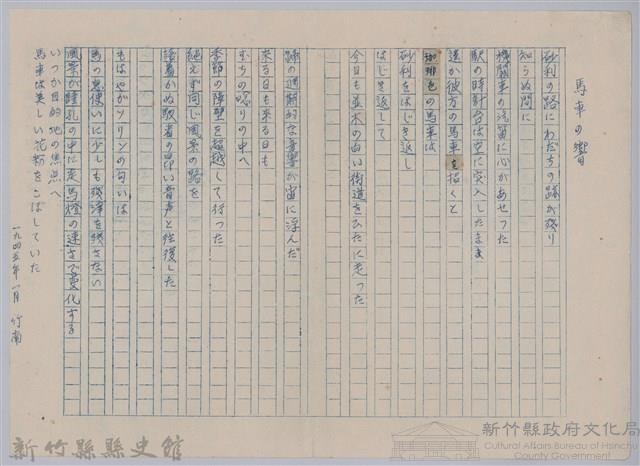 馬車の響
砂利の路にわだちの跡が残り
知らぬ間に
機関車の汽笛に心があせった
駅の時計台は空に突入したまま
遥か彼方の馬車を招くと
珈琲色の馬車は
砂利をはじき返し
はじき返して
今日も並木の白い街道をひたに走った
蹄の週期的な音響が宙に浮んだ
来る日も来る日も
むちの唸りの中へ
季節の障壁を超越して行った
絶えず同じ風景の路を
語着かぬ馭者の昂い音声と往復した
もはやガソリンの匂いは
馬の息使いに少しも残滓を残さない
風景が瞳孔の中に走馬燈の速さで変化する
いつか目的地の焦点へ
馬車は美しい花粉をこぼしていた
一九四五年一月 竹南
新竹縣縣史館
新竹縣政府文化局
Cultural Affairs Bureau of Hsinchu
County Government